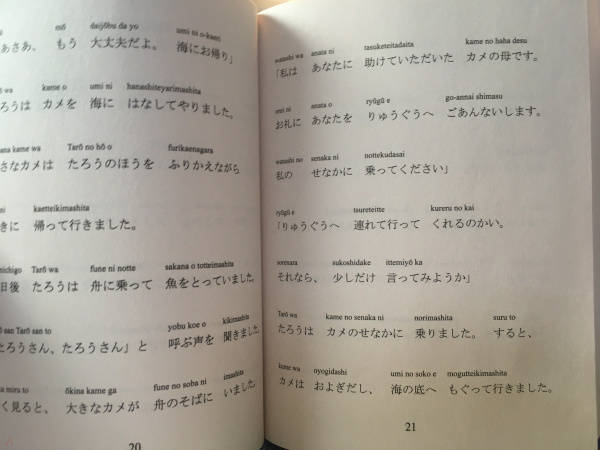 mō daijōbu da yo umi ni o-kaeri
もう 大丈夫だよ。 海にお帰り」
kame o umi ni hanashiteyarimashita
ろうは カメを 海に はなしてやりました。
kame wa Tarō no hō o furikaenagara
さなカメは たろうのほうを ふりかえながら
ni kaetteikimashita
きに 帰って行きました。
Tarō wa fune ni notte sakana o totteimashita
日後 たろうは 舟に乗って 魚をとっていました。
san Tarō san to yobu koe o kikimashita
たろうさん、たろうさん」と 呼ぶ声を 聞きました。
miru to ōkina kame ga fune no soba ni imashita
く見ると、 大きなカメが 舟のそばに いました。
20
watashi wa anata ni tasuketeitadaita kame no haha desu
「私は あなたに 助けていただいた カメの母です。
orei ni anata o ryūgū e go-annai shimasu
お礼に あなたを りゅうぐうへ ごあんないします。
watashi no senaka ni nottekudasai
私の せなかに 乗ってください」
ryūgū e tsureteitte kureru no kai
「りゅうぐうへ 連れて行って くれるのかい。
sorenara sukoshidake ittemiyō ka
それなら、 少しだけ 言ってみようか」
Tarō wa kame no senaka ni norimashita suru to
たろうは カメのせなかに 乗りました。 すると、
kame wa oyogidashi umi no soko e mogutteikimashita
カメは およぎだし、 海の底へ もぐって行きました。
21